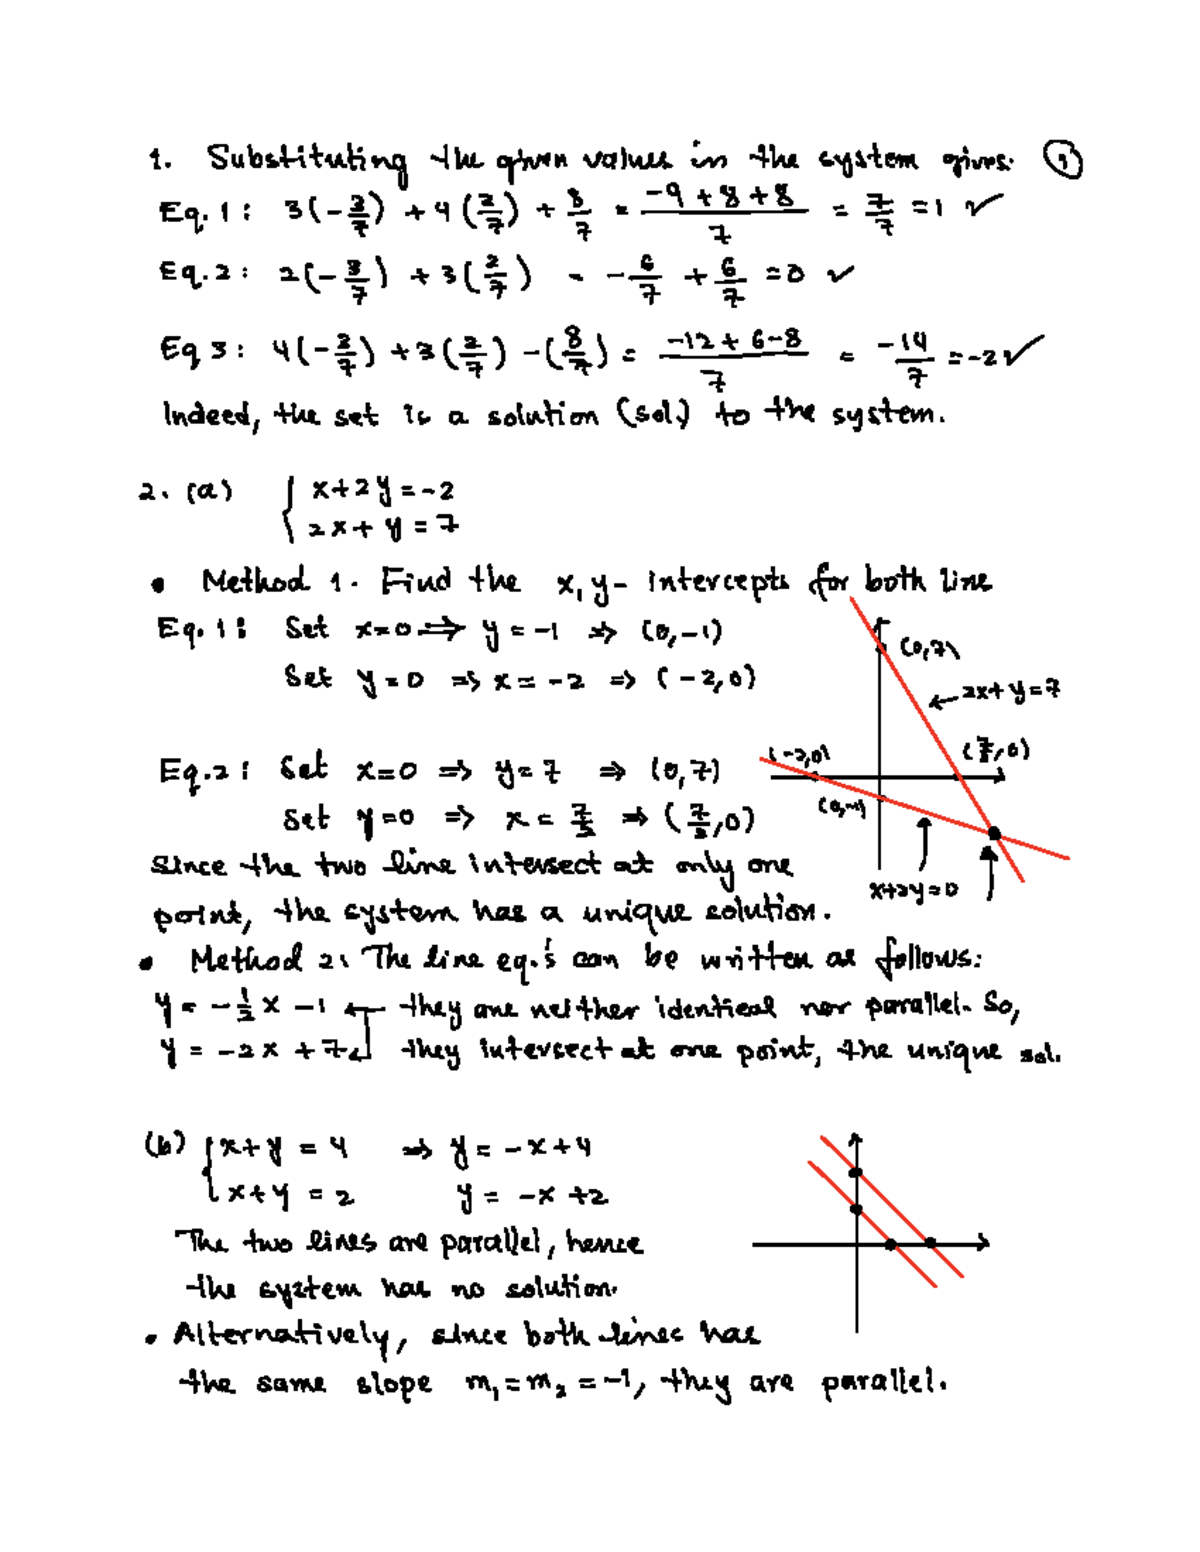 1. Substituting the given values in the system gives: ①
Eq. 1: 3(-3/7) + 4(2/7) + 8/7 = (-9+8+8)/7 = 7/7 = 1 ✓
Eq. 2: 2(-3/7) + 3(2/7) = -6/7 + 6/7 = 0 ✓
Eq 3: 4(-3/7) + 3(2/7) - (8/7) = (-12+6-8)/7 = -14/7 = -2 ✓
Indeed, the set is a solution (sol.) to the system.
2. (a) { x+2y=-2
2x+y=7
• Method 1. Find the x,y- intercepts for both line
Eq. 1: Set x=0 ⇒ y=-1 ⇒ (0,-1)
Set y=0 ⇒ x=-2 ⇒ (-2,0)
Eq. 2: Set x=0 ⇒ y=7 ⇒ (0,7)
Set y=0 ⇒ x=7/2 ⇒ (7/2,0)
(0,7)
← 2x+y=7
(-2,0)
(7/2,0)
(0,-1)
x+2y=0
Since the two line intersect at only one
point, the system has a unique solution.
• Method 2: The line eq.'s can be written as follows:
y = -1/2 x -1 ← they are neither identical nor parallel. So,
y = -2x +7 ← they intersect at one point, the unique sol.
(b) { x+y=4 ⇒ y=-x+4
x+y=2 y=-x+2
The two lines are parallel, hence
the system has no solution.
• Alternatively, since both lines has
the same slope m₁=m₂=-1, they are parallel.